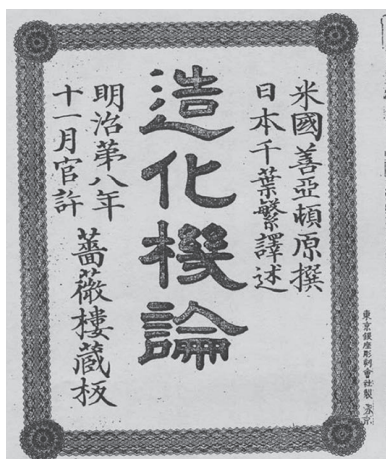 米國善亞頓原撰
日本千葉繁譯述
造化機論
明治第八年
十一月官許
薔薇樓藏板
東京銀座彫刻會社製